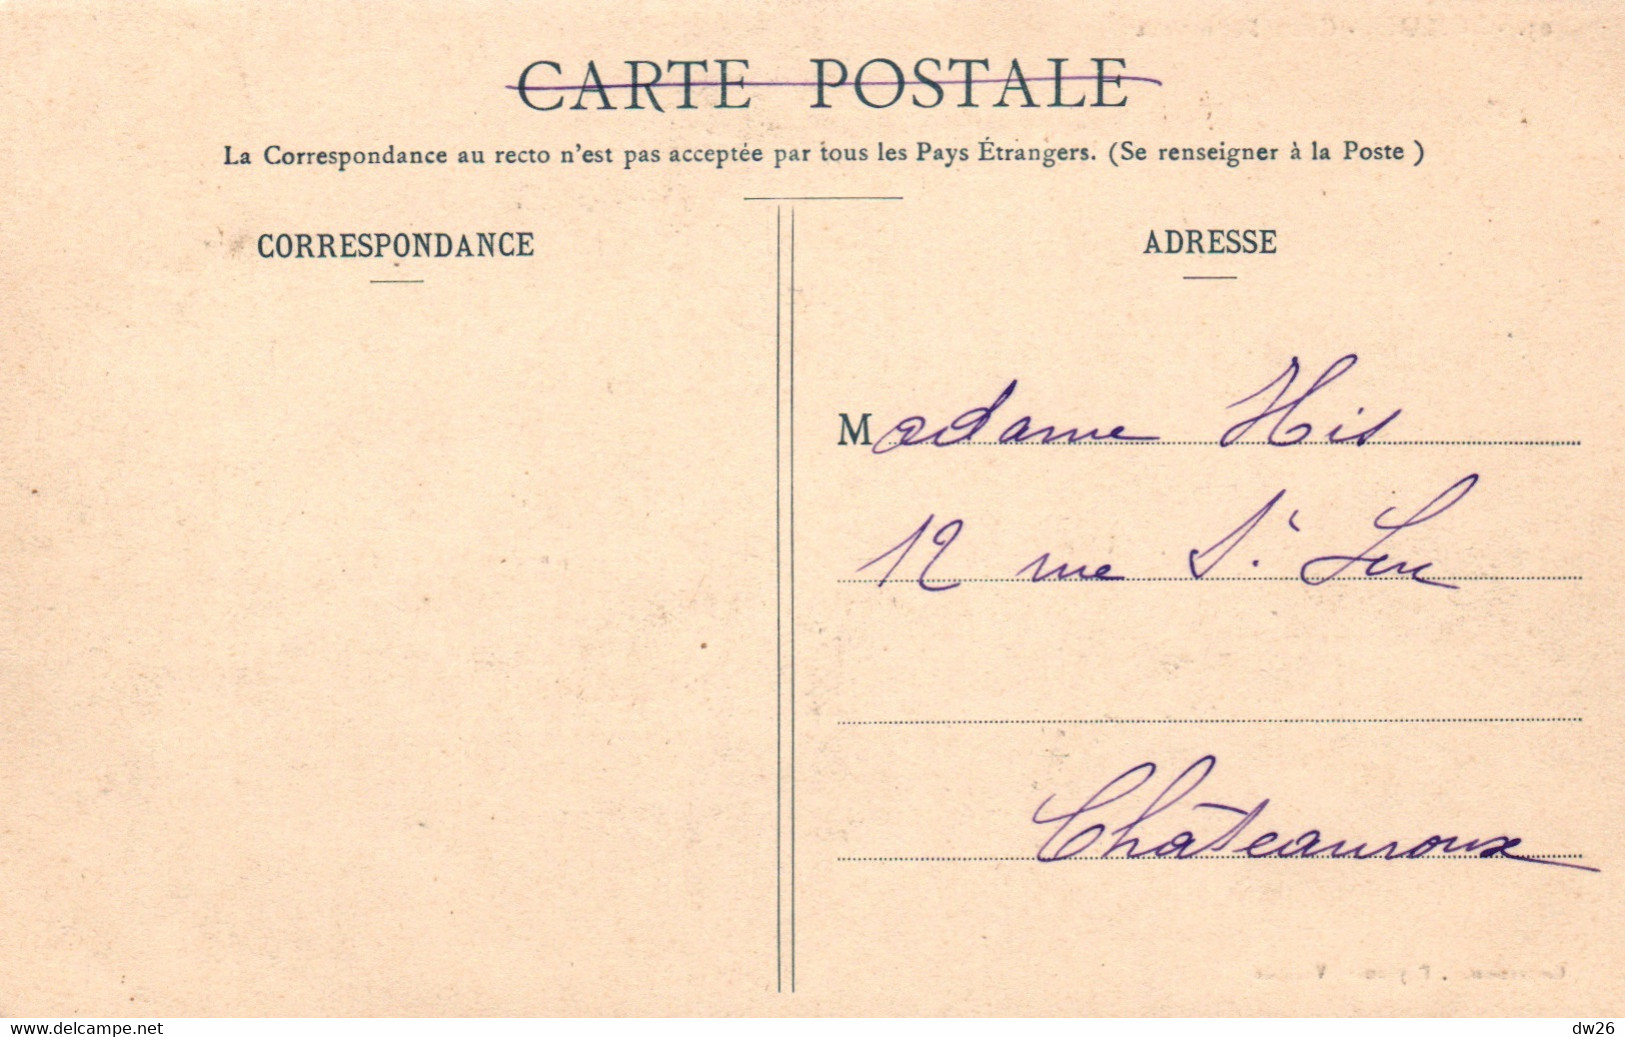 CARTE POSTALE
La Correspondance au recto n'est pas acceptée par tous les Pays Étrangers. (Se renseigner à la Poste )
CORRESPONDANCE
ADRESSE
Madame His
12 rue St Luc
Châteauroux
www.delcampe.net
dw26